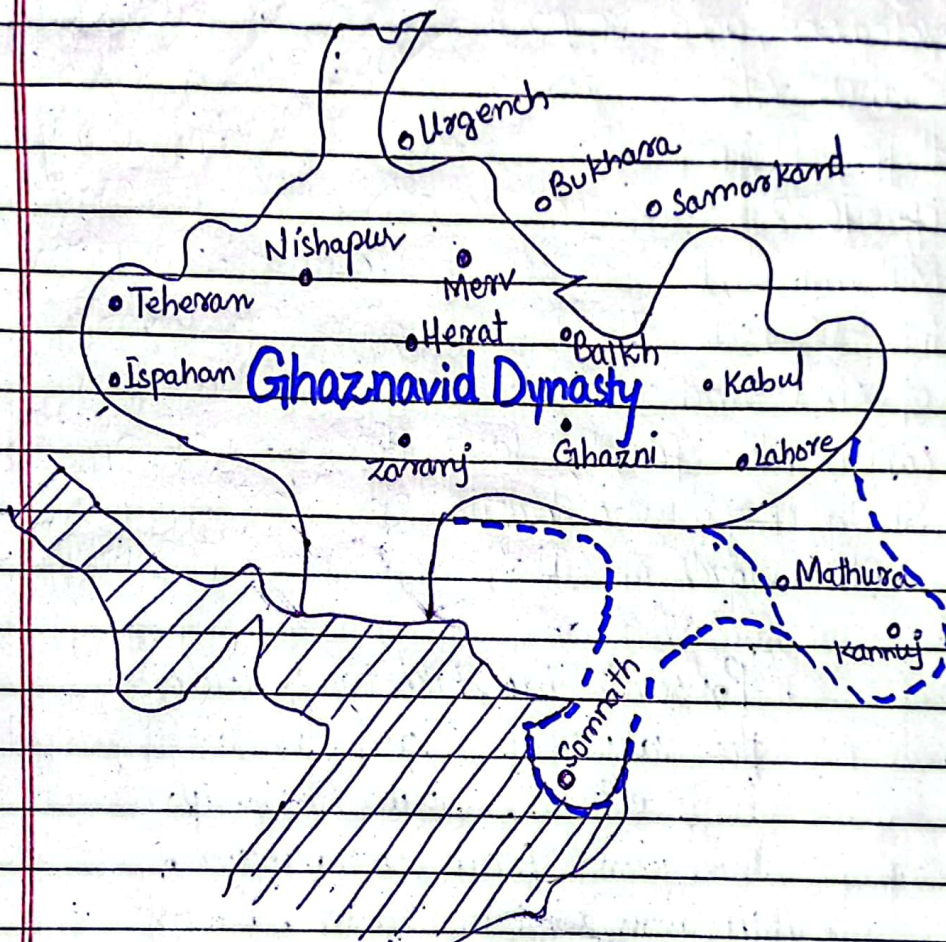 Urgench
Bukhara
Samarkand
Nishapur
Merv
Teheran
Herat
Balkh
Ispahan
Ghaznavid Dynasty
Kabul
Zaranj
Ghazni
Lahore
Mathura
Kannuj
Somnath